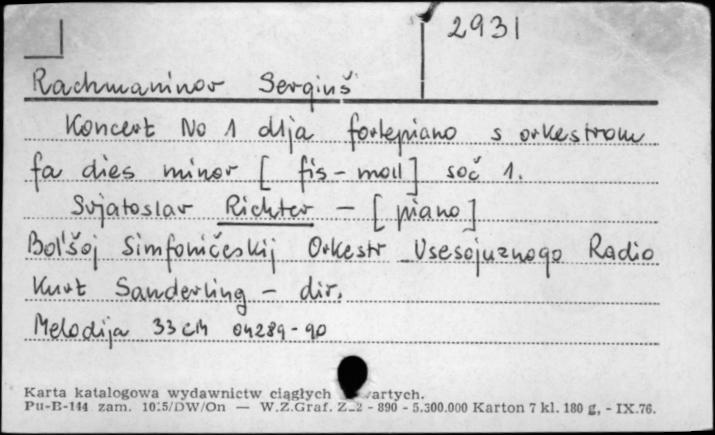 2931
Rachmaninov Sergiuš
Koncert No 1 dlja fortepiano s orkestrom
fa dies minor [fis-moll] soč 1.
Svjatoslav Richter - [piano]
Bol'šoj Simfoničeskij Orkestr Vsesojuznogo Radio
Kurt Sanderling - dir.
Melodija 33 cM 04289-90
Karta katalogowa wydawnictw ciągłych
Pu-B-144 zam. 1015/DW/On — W.Z.Graf. Z-2 - 890 - 5.300.000 Karton 7 kl. 180 g, - IX.76.